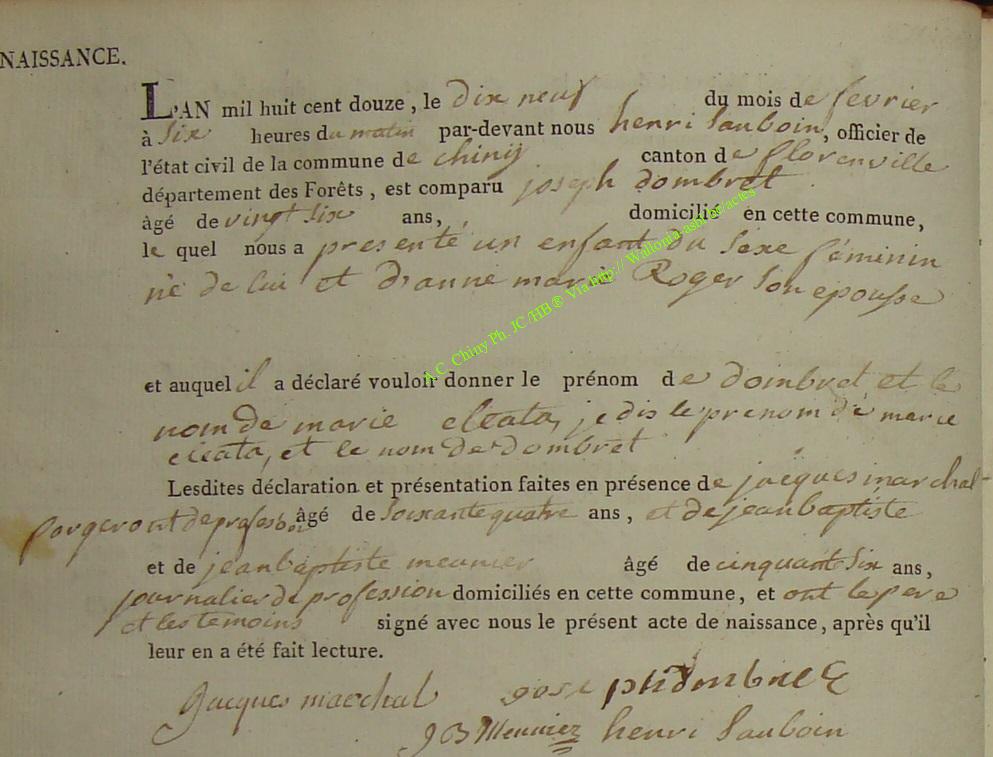 NAISSANCE.
L'AN mil huit cent douze, le dix neuf du mois de fevrier
à six heures du matin par-devant nous henri Sauboin, officier de
l'état civil de la commune de chiny canton de florenville
département des Forêts, est comparu joseph dombret
âgé de vingt six ans, domicilié en cette commune,
le quel nous a presenté un enfant du sexe féminin
né de lui et d'anne marie Roger son epousse
et auquel il a déclaré vouloir donner le prénom de dombret et le
nom de marie eleata, je dis le prenom de marie
eleata, et le nom de dombret
Lesdites déclaration et présentation faites en présence de jacques marchal
forgeront de profession âgé de soixante quatre ans, et de jean baptiste
et de jean baptiste meunier âgé de cinquante six ans,
journalier de profession domiciliés en cette commune, et ont le pere
et les temoins signé avec nous le présent acte de naissance, après qu'il
leur en a été fait lecture.
Jacques marchal joseph dombret
J B Meunier henri Sauboin
A C Chiny Ph. JC /HB ® Via http:// Wallonia-asbl.be/actes